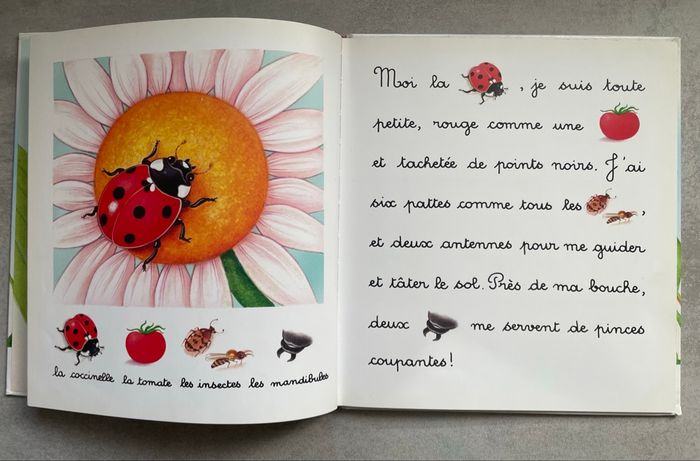 la coccinelle la tomate les insectes les mandibules
Moi la , je suis toute
petite, rouge comme une
et tachetée de points noirs. J'ai
six pattes comme tous les ,
et deux antennes pour me guider
et tâter le sol. Près de ma bouche,
deux me servent de pinces
coupantes!